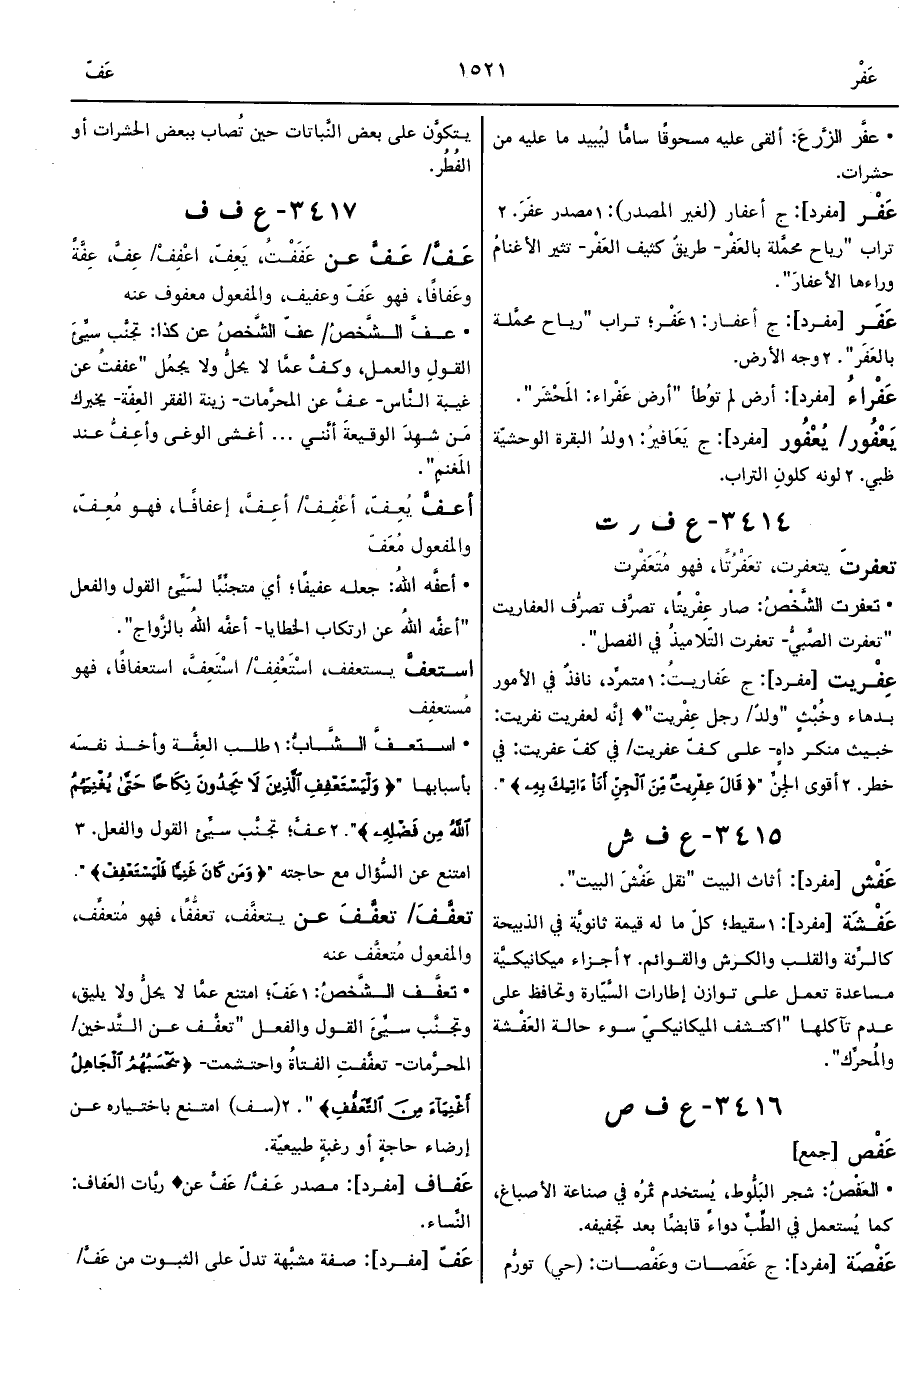 عَفْر
١٥٢١
عَفّ
• عفَّر الزَّرعَ: ألقى عليه مسحوقًا سامًّا ليُبيد ما عليه من
حشرات.
عَفْر [مفرد]: ج أعفار (لغير المصدر): ١مصدر عفَرَ. ٢
تراب "رياح محمَّلة بالعَفْر- طريقُ كثيف العَفْر- تثير الأغنامُ
وراءها الأعفارَ".
عَفَر [مفرد]: ج أعفار: ١عَفْر؛ تراب "رياح محمَّلة
بالعَفَر". ٢وجه الأرض.
عَفْراءُ [مفرد]: أرض لم توُطأ "أرض عَفْراء: المَحْشَر".
يَعْفُور/ يُعْفُور [مفرد]: ج يَعَافيرُ: ١ولدُ البقرة الوحشيّة
ظبي. ٢ لونه كلونِ التراب.
٣٤١٤- ع ف ر ت
تعفرتَ يتعفرت، تعَفْرُتًا، فهو مُتَعَفْرِت
• تعفرت الشَّخصُ: صار عِفْريتًا، تصرَّف تصرُّف العفاريت
"تعفرت الصَّبيُّ- تعفرت التّلاميذُ في الفصل".
عِفْريت [مفرد]: ج عَفاريتُ: ١متمرِّد، نافذٌ في الأمور
بدهاء وخُبْثٍ "ولدٌ/ رجل عِفْريت"♦ إنَّه لعفريت نفريت:
خبيث منكر داهٍ- على كفّ عفريت/ في كفّ عفريت: في
خطر. ٢ أقوى الجنّ "﴿ قَالَ عِفْرِيتٌ مِّنَ ٱلْجِنِّ أَنَا۠ ءَاتِيكَ بِهِۦ ﴾".
٣٤١٥- ع ف ش
عَفْش [مفرد]: أثاث البيت "نقل عَفْشَ البيت".
عَفْشة [مفرد]: ١سقيط؛ كلّ ما له قيمة ثانويَّة في الذبيحة
كالرِّئة والقلب والكرش والقوائم. ٢ أجزاء ميكانيكيَّة
مساعدة تعمل على توازن إطارات السَّيّارة وتحافظ على
عدم تآكلها "اكتشف الميكانيكيّ سوء حالة العَفْشة
والمُحرِّك".
٣٤١٦- ع ف ص
عَفْص [جمع]
• العَفْصُ: شجر البَلُّوط، يُستخدم ثمرُه في صناعة الأصباغ،
كما يُستعمل في الطِّبِّ دواءً قابضًا بعد تجفيفه.
عَفْصَة [مفرد]: ج عَفَصات وعَفْصات: (حي) تورُّم
يتكوَّن على بعض النَّباتات حين تُصاب ببعض الحشرات أو
الفُطُر.
٣٤١٧- ع ف ف
عَفَّ/ عَفَّ عن عَفَفْتُ، يَعِفّ، اعْفِفْ/ عِفَّ، عِفَّةً
وعَفافًا، فهو عَفّ وعفيف، والمفعول معفوف عنه
• عفَّ الشَّخصُ/ عفّ الشَّخصُ عن كذا: تجنَّب سيِّئَ
القولِ والعملِ، وكفّ عمَّا لا يحلُّ ولا يجمُل "عففتُ عن
غيبة النَّاس- عفَّ عن المحرَّمات- زينة الفقر العِفَّة- يخبرك
مَن شهدَ الوقيعةَ أنَّني ... أغشى الوغى وأعِفُّ عند
المَغنمِ".
أعفَّ يُعِفّ، أعْفِفْ/ أعِفَّ، إعفافًا، فهو مُعِفّ،
والمفعول مُعَفّ
• أعفَّه اللهُ: جعله عفيفًا؛ أي متجنِّبًا لسَيِّئ القول والفعل
"أعفَّه اللهُ عن ارتكاب الخطايا- أعفَّه اللهُ بالزَّواج".
استعفَّ يستعفف، اسْتَعْفِفْ/ اسْتَعِفَّ، استعفافًا، فهو
مُستعفِف
• استعفَّ الشَّابُّ: ١طلب العِفَّة وأخذ نفسَه
بأسبابها "﴿ وَلْيَسْتَعْفِفِ ٱلَّذِينَ لَا يَجِدُونَ نِكَاحًا حَتَّىٰ يُغْنِيَهُمُ
ٱللَّهُ مِن فَضْلِهِۦ ﴾". ٢ عفَّ؛ تجنَّب سيِّئ القول والفعل. ٣
امتنع عن السُّؤال مع حاجته "﴿ وَمَن كَانَ غَنِيًّا فَلْيَسْتَعْفِفْ ﴾".
تعفَّفَ/ تعفَّفَ عن يتعفَّف، تعفُّفًا، فهو مُتعفِّف،
والمفعول مُتعفَّف عنه
• تعفَّف الشَّخصُ: ١عَفّ؛ امتنع عمَّا لا يحلُّ ولا يليق،
وتجنَّب سيِّئَ القول والفعل "تعفَّف عن التَّدخين/
المحرَّمات- تعفَّفتِ الفتاةُ واحتشمت- ﴿ يَحْسَبُهُمُ ٱلْجَاهِلُ
أَغْنِيَآءَ مِنَ ٱلتَّعَفُّفِ ﴾ ". ٢(سف) امتنع باختياره عن
إرضاء حاجةٍ أو رغبةٍ طبيعيّة.
عَفاف [مفرد]: مصدر عَفَّ/ عَفَّ عن♦ ربَّات العَفاف:
النِّساء.
عَفّ [مفرد]: صفة مشبَّهة تدلّ على الثبوت من عَفَّ/